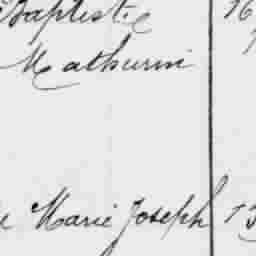 Baptiste
Mathurin
Marie Joseph 13